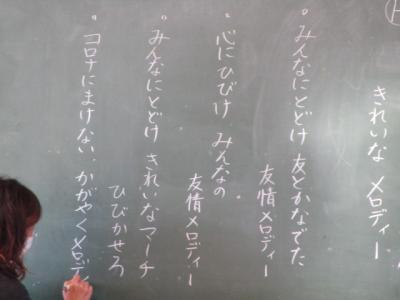 きれいな メロディー
。みんなにとどけ 友とかなでた
友情メロディー
。心にひびけ みんなの
友情メロディー
。みんなにとどけ きれいなマーチ
ひびかせろ
。コロナにまけない、かがやくメロデ